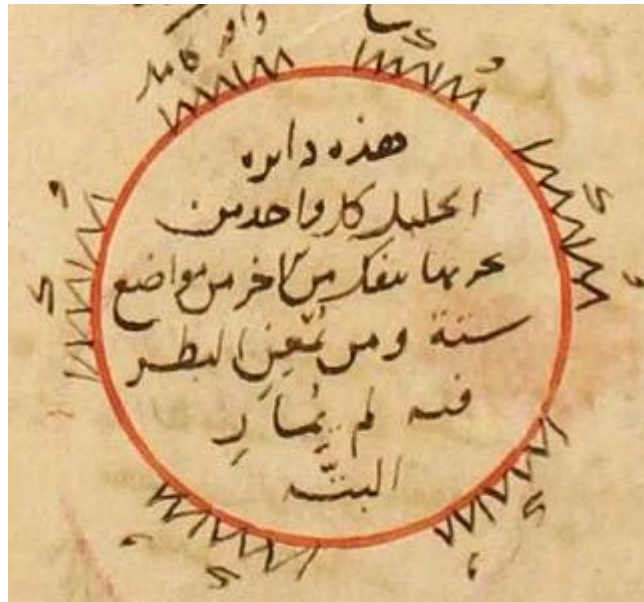 هذه دايره
الخليل كل واحد من
بحريها ينفك من الاخر من مواضع
ستة ومن يمعن النظر
فيه لم يمار
البتة